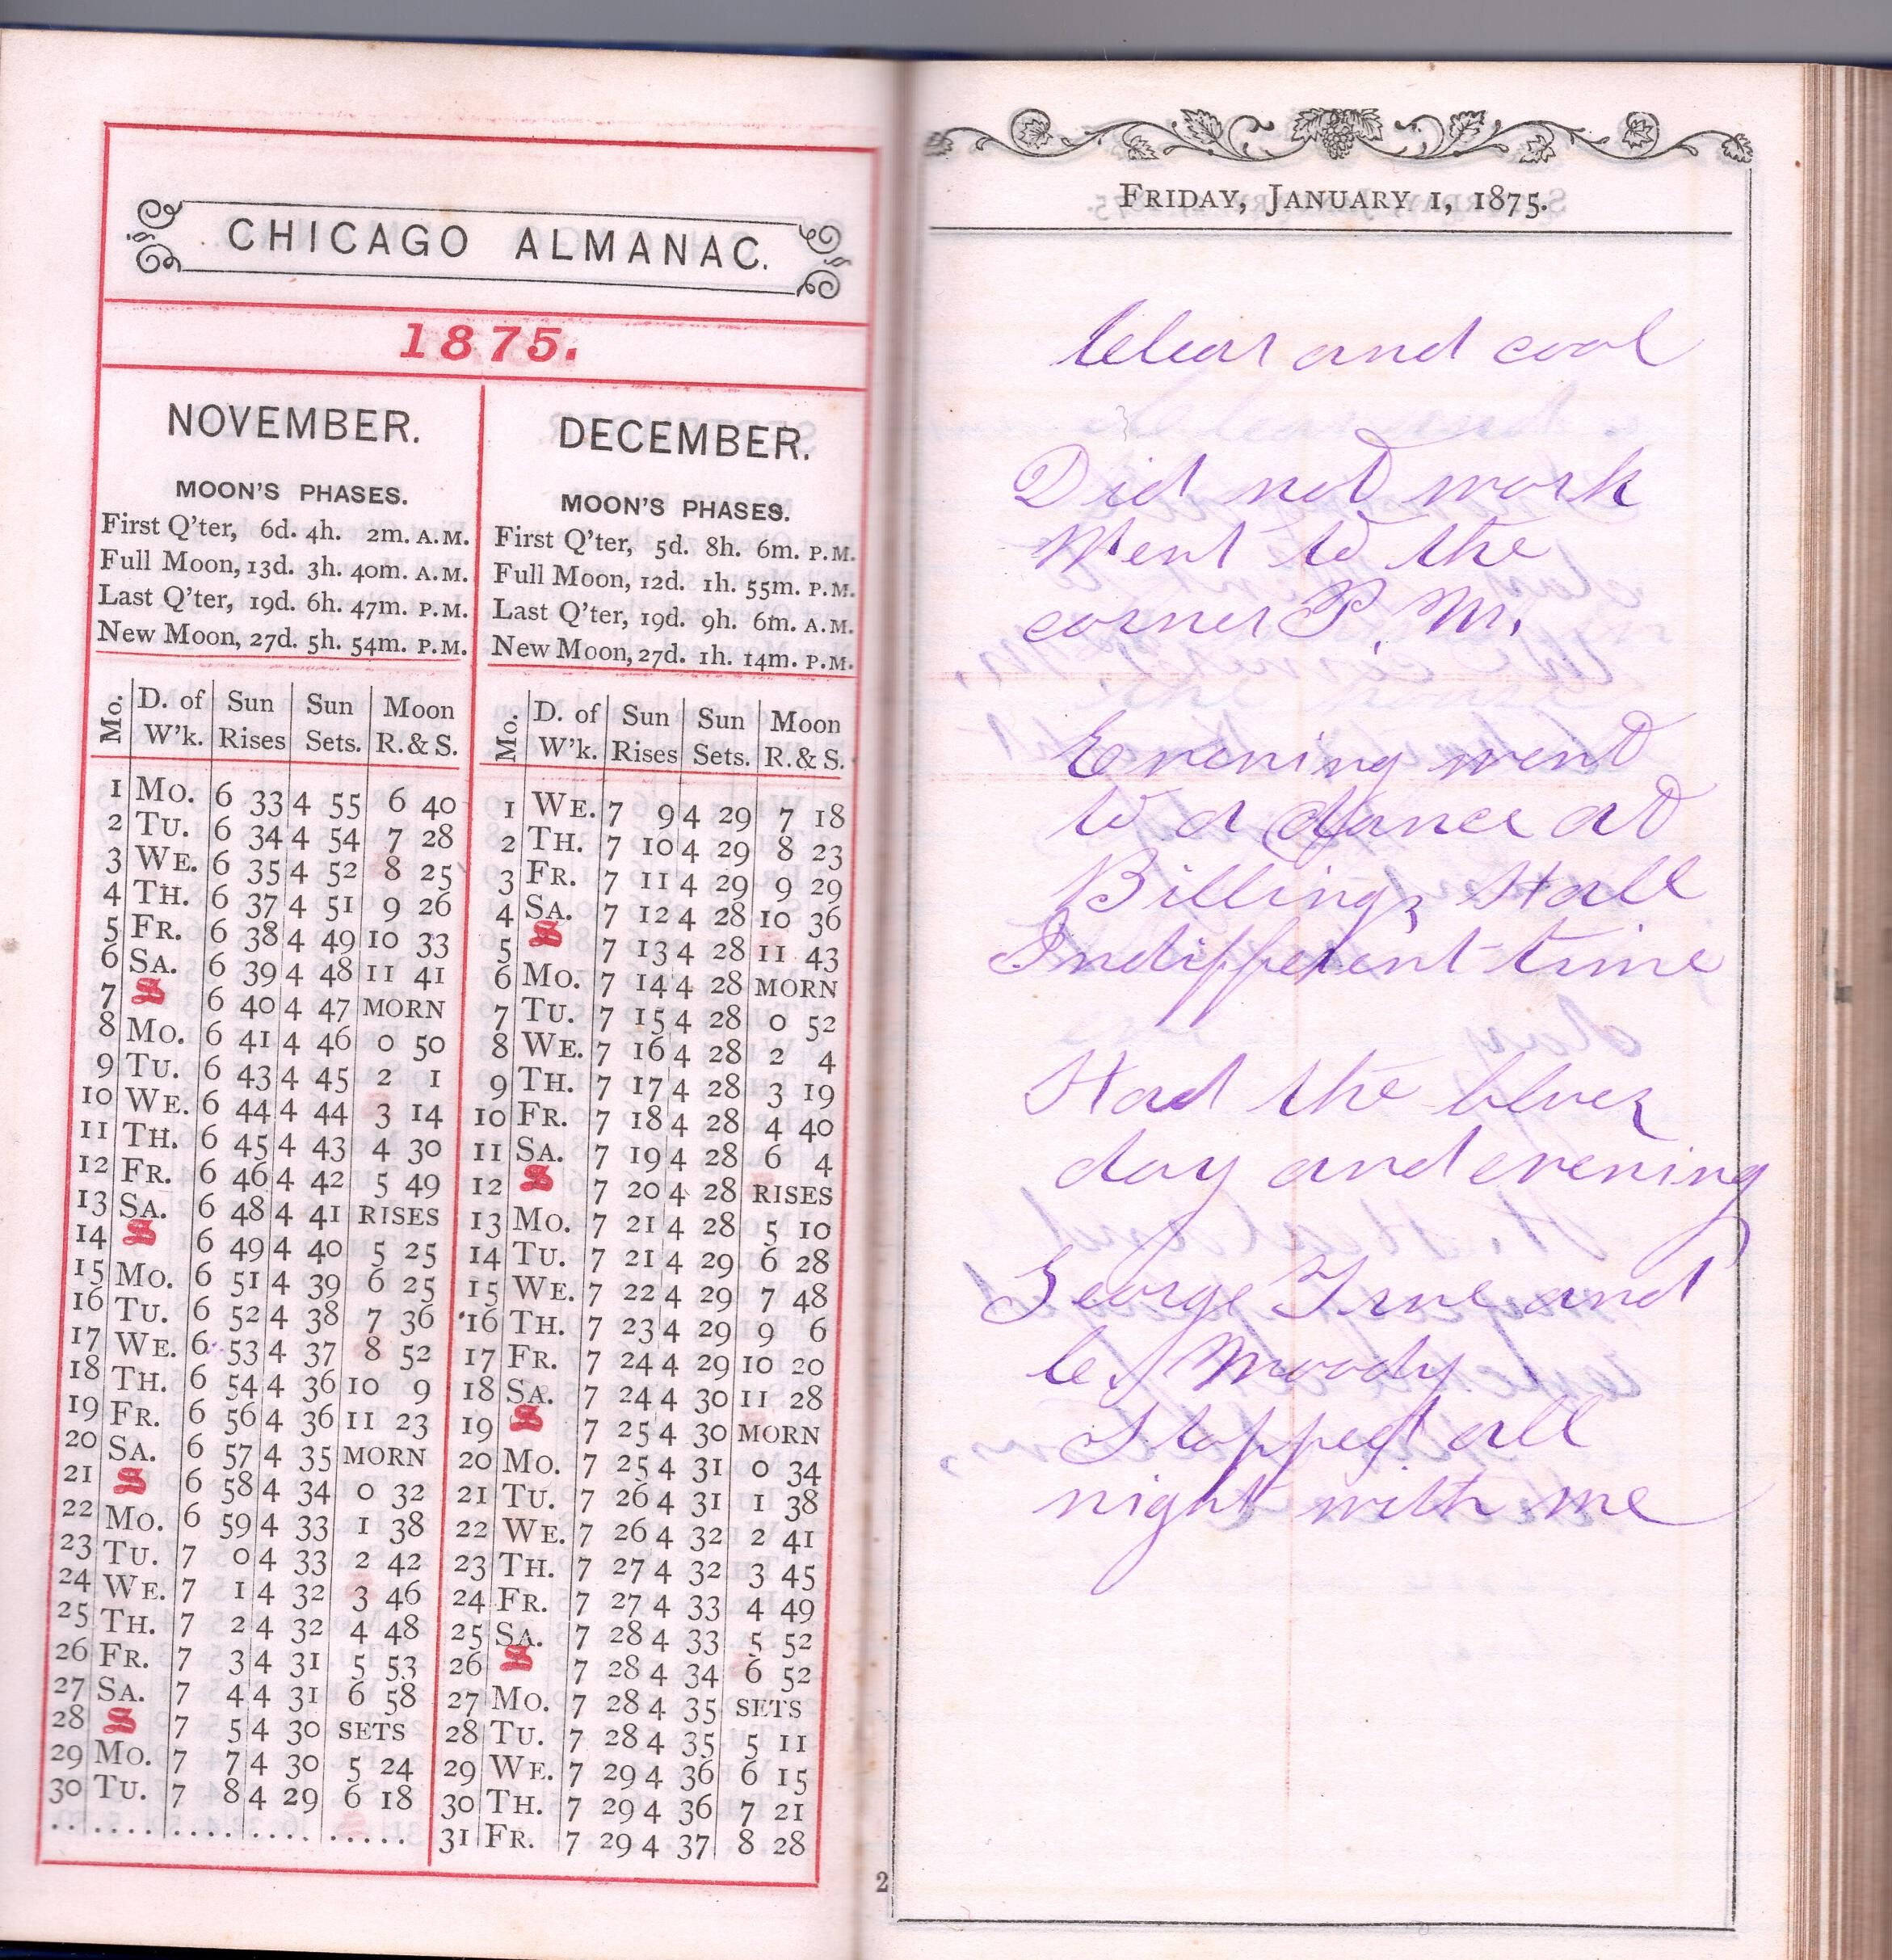 CHICAGO ALMANAC.
1875.
NOVEMBER.
MOON'S PHASES.
First Q'ter, 6d. 4h. 2m. A.M.
Full Moon, 13d. 3h. 40m. A.M.
Last Q'ter, 19d. 6h. 47m. P.M.
New Moon, 27d. 5h. 54m. P.M.
Mo. D. of W'k. Sun Rises Sun Sets. Moon R. & S.
1 MO. 6 33 4 55 6 40
2 TU. 6 34 4 54 7 28
3 WE. 6 35 4 52 8 25
4 TH. 6 37 4 51 9 26
5 FR. 6 38 4 49 10 33
6 SA. 6 39 4 48 11 41
7 S 6 40 4 47 MORN
8 MO. 6 41 4 46 0 50
9 TU. 6 43 4 45 2 1
10 WE. 6 44 4 44 3 14
11 TH. 6 45 4 43 4 30
12 FR. 6 46 4 42 5 49
13 SA. 6 48 4 41 RISES
14 S 6 49 4 40 5 25
15 MO. 6 51 4 39 6 25
16 TU. 6 52 4 38 7 36
17 WE. 6 53 4 37 8 52
18 TH. 6 54 4 36 10 9
19 FR. 6 56 4 36 11 23
20 SA. 6 57 4 35 MORN
21 S 6 58 4 34 0 32
22 MO. 6 59 4 33 1 38
23 TU. 7 0 4 33 2 42
24 WE. 7 1 4 32 3 46
25 TH. 7 2 4 32 4 48
26 FR. 7 3 4 31 5 53
27 SA. 7 4 4 31 6 58
28 S 7 5 4 30 SETS
29 MO. 7 7 4 30 5 24
30 TU. 7 8 4 29 6 18
DECEMBER.
MOON'S PHASES.
First Q'ter, 5d. 8h. 6m. P.M.
Full Moon, 12d. 1h. 55m. P.M.
Last Q'ter, 19d. 9h. 6m. A.M.
New Moon, 27d. 1h. 14m. P.M.
Mo. D. of W'k. Sun Rises Sun Sets. Moon R. & S.
1 WE. 7 9 4 29 7 18
2 TH. 7 10 4 29 8 23
3 FR. 7 11 4 29 9 29
4 SA. 7 12 4 28 10 36
5 S 7 13 4 28 11 43
6 MO. 7 14 4 28 MORN
7 TU. 7 15 4 28 0 52
8 WE. 7 16 4 28 2 4
9 TH. 7 17 4 28 3 19
10 FR. 7 18 4 28 4 40
11 SA. 7 19 4 28 6 4
12 S 7 20 4 28 RISES
13 MO. 7 21 4 28 5 10
14 TU. 7 21 4 29 6 28
15 WE. 7 22 4 29 7 48
16 TH. 7 23 4 29 9 6
17 FR. 7 24 4 29 10 20
18 SA. 7 24 4 30 11 28
19 S 7 25 4 30 MORN
20 MO. 7 25 4 31 0 34
21 TU. 7 26 4 31 1 38
22 WE. 7 26 4 32 2 41
23 TH. 7 27 4 32 3 45
24 FR. 7 27 4 33 4 49
25 SA. 7 28 4 33 5 52
26 S 7 28 4 34 6 52
27 MO. 7 28 4 35 SETS
28 TU. 7 28 4 35 5 11
29 WE. 7 29 4 36 6 15
30 TH. 7 29 4 36 7 21
31 FR. 7 29 4 37 8 28
2
FRIDAY, JANUARY 1, 1875.
Clear and cool
Did not work
Went to the
corner P. M.
Evening went
to a dance at
Billings Hall
Indifferent time
Had the blues
day and evening
George True and
C. Moody
Stopped all
night with me